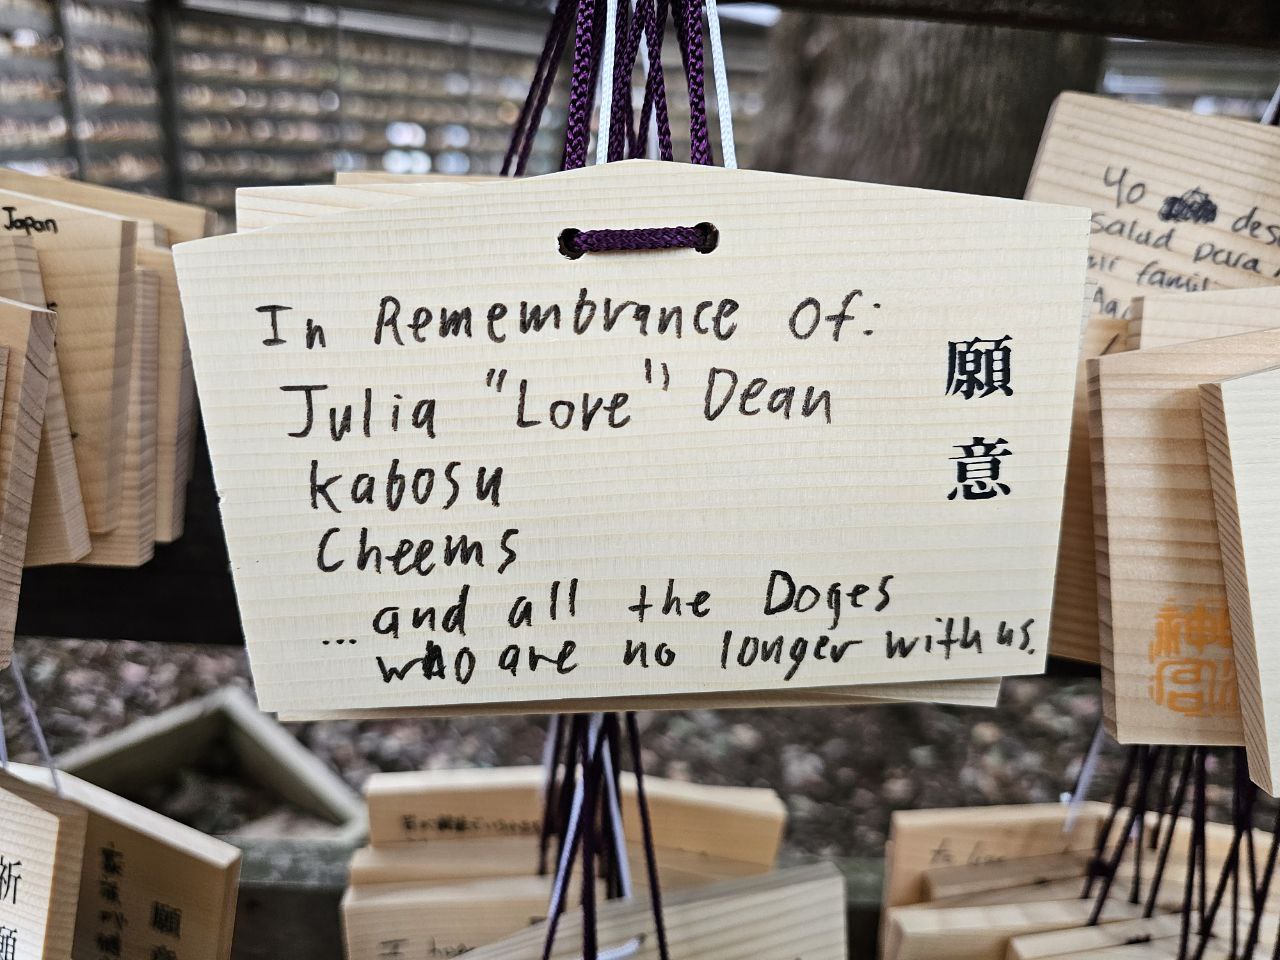 In Remembrance Of:
Julia "Love" Dean
Kabosu
Cheems
... and all the Doges
who are no longer with us.
願意
Japan
Yo des
Salud para
famil
神宮
祈願
願意
I